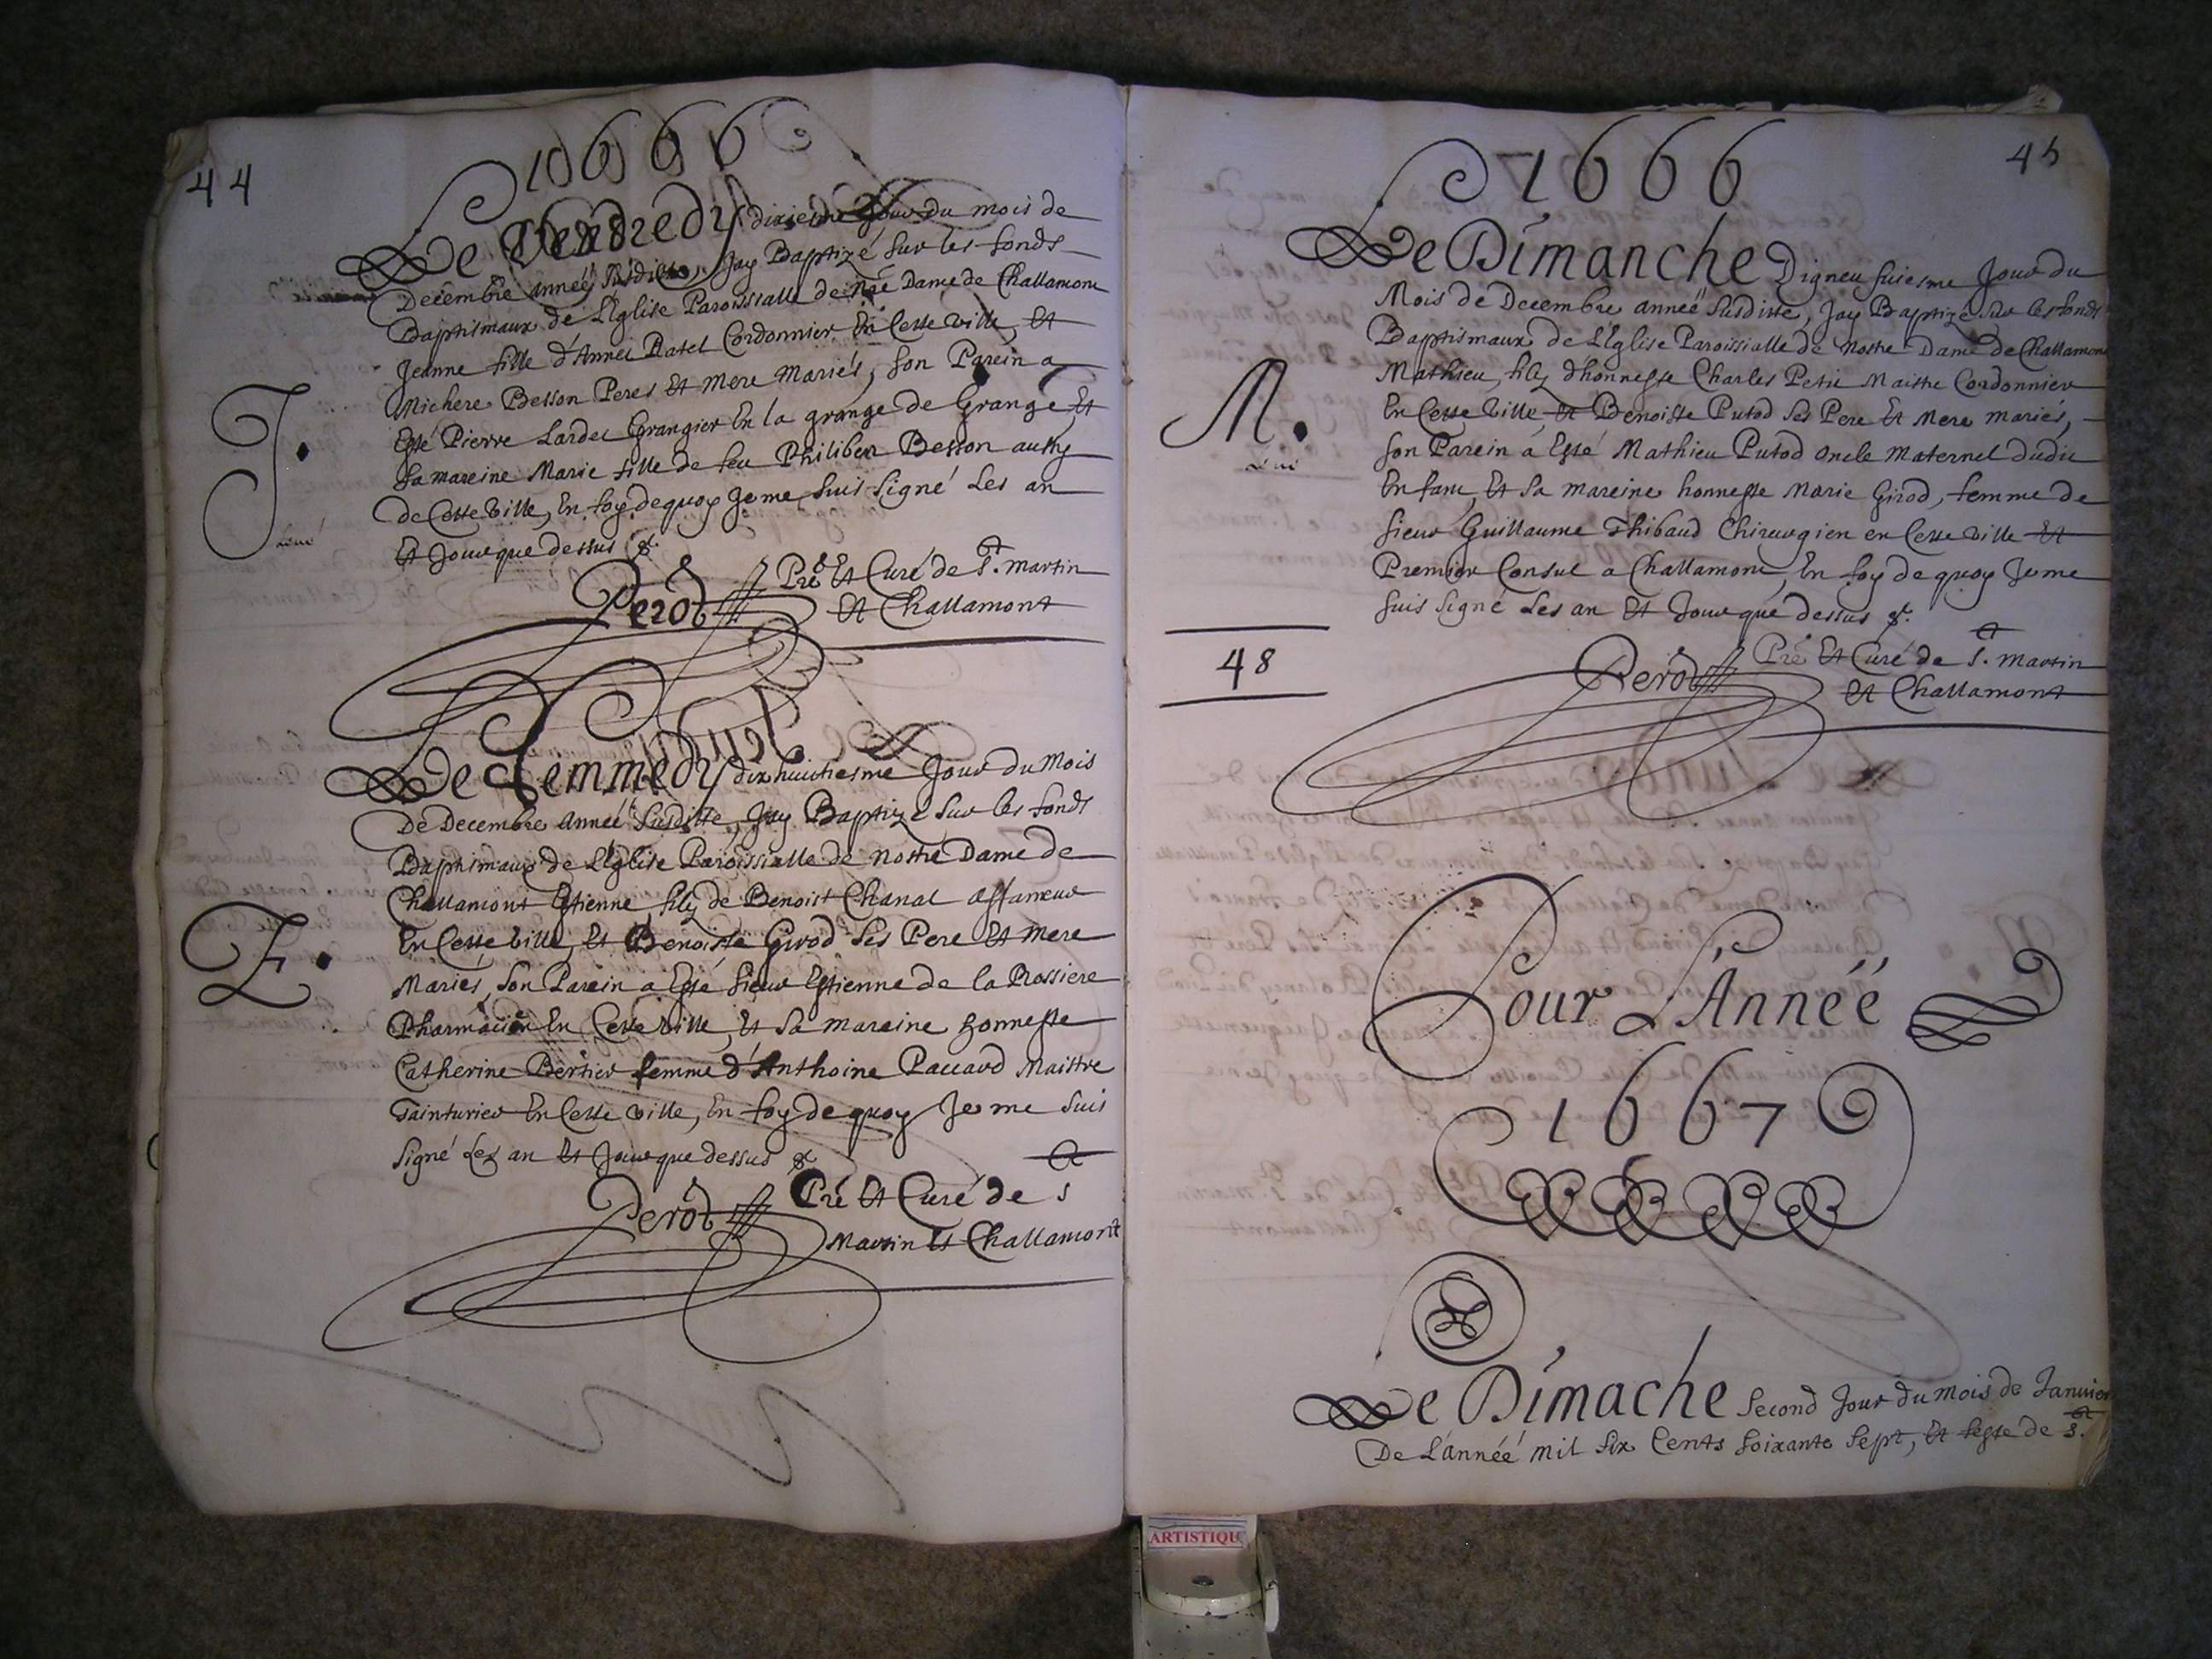 44
1666
Le Vendredy dixiesme Jour du mois de
Decembre anneé Susditte, Jay Baptizé Sur les fonds
Baptismaux de L'Eglise Paroissialle de nr̃e Dame de Challamont
Jeanne fille d'Annet Datel Cordonnier En Cette ville, Et
Michere Besson Peres Et Mere Mariés, Son Parein a
Esté Pierre Lardet Grangier En la grange de Grange Et
Sa mareine Marie fille de feu Philibert Besson aussy
de Cette ville, En foy dequoy Je me Suis Signé Les an
Et Jour que dessus &.
J.
Perod Pr̃e Et Curé de S.t Martin
Et Challamont
Le Semmedy dix huictiesme Jour du Mois
De Decembre Anneé Susditte, Jay Baptizé Sur les fonds
Baptismaux de L'Eglise Paroissialle de nostre Dame de
Challamont Estienne fily de Benoist Chanal affaneur
En Cette ville, Et Benoiste Girod Ses Pere Et Mere
Mariés, Son Parein a Esté Sieur Estienne de la Rossiere
Pharmacien En Cette ville, Et Sa mareine honneste
Catherine Bertier femme d'Anthoine Paccard Maistre
Tainturier En Cette ville, En foy de quoy Je me Suis
Signé Les an Et Jour que dessus &
E.
Perod Pr̃e Et Curé de S.t
Martin Et Challamont
45
1666
Le Dimanche Digneu fuiesme Jour du
Mois de Decembre anneé Susditte, Jay Baptizé Sur les fonds
Baptismaux de L'Eglise Paroissialle de Nostre Dame de Challamont
Mathieu, fily d'honneste Charles Petit Maistre Cordonnier
En Cette ville, Et Benoiste Putod Ses Pere Et Mere mariés,
Son Parein a Esté Mathieu Putod oncle Maternel dudit
Enfant, Et Sa mareine honneste Marie Girod, femme de
Sieur Guillaume Thibaud Chirurgien en Cette ville Et
Premier Consul a Challamont, En foy de quoy Je me
Suis Signé Les an Et Jour que dessus &.
M.
48
Perod Pr̃e Et Curé de S.t Martin
Et Challamont
Pour L'Anneé
1667
Le Dimache Second Jour du Mois de Januier
De L'anneé mil Six Cents Soixante Sept, Et feste de S.t
ARTISTIQU